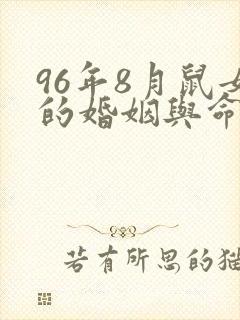 96年8月鼠女
的婚姻與命
若有所思的猫